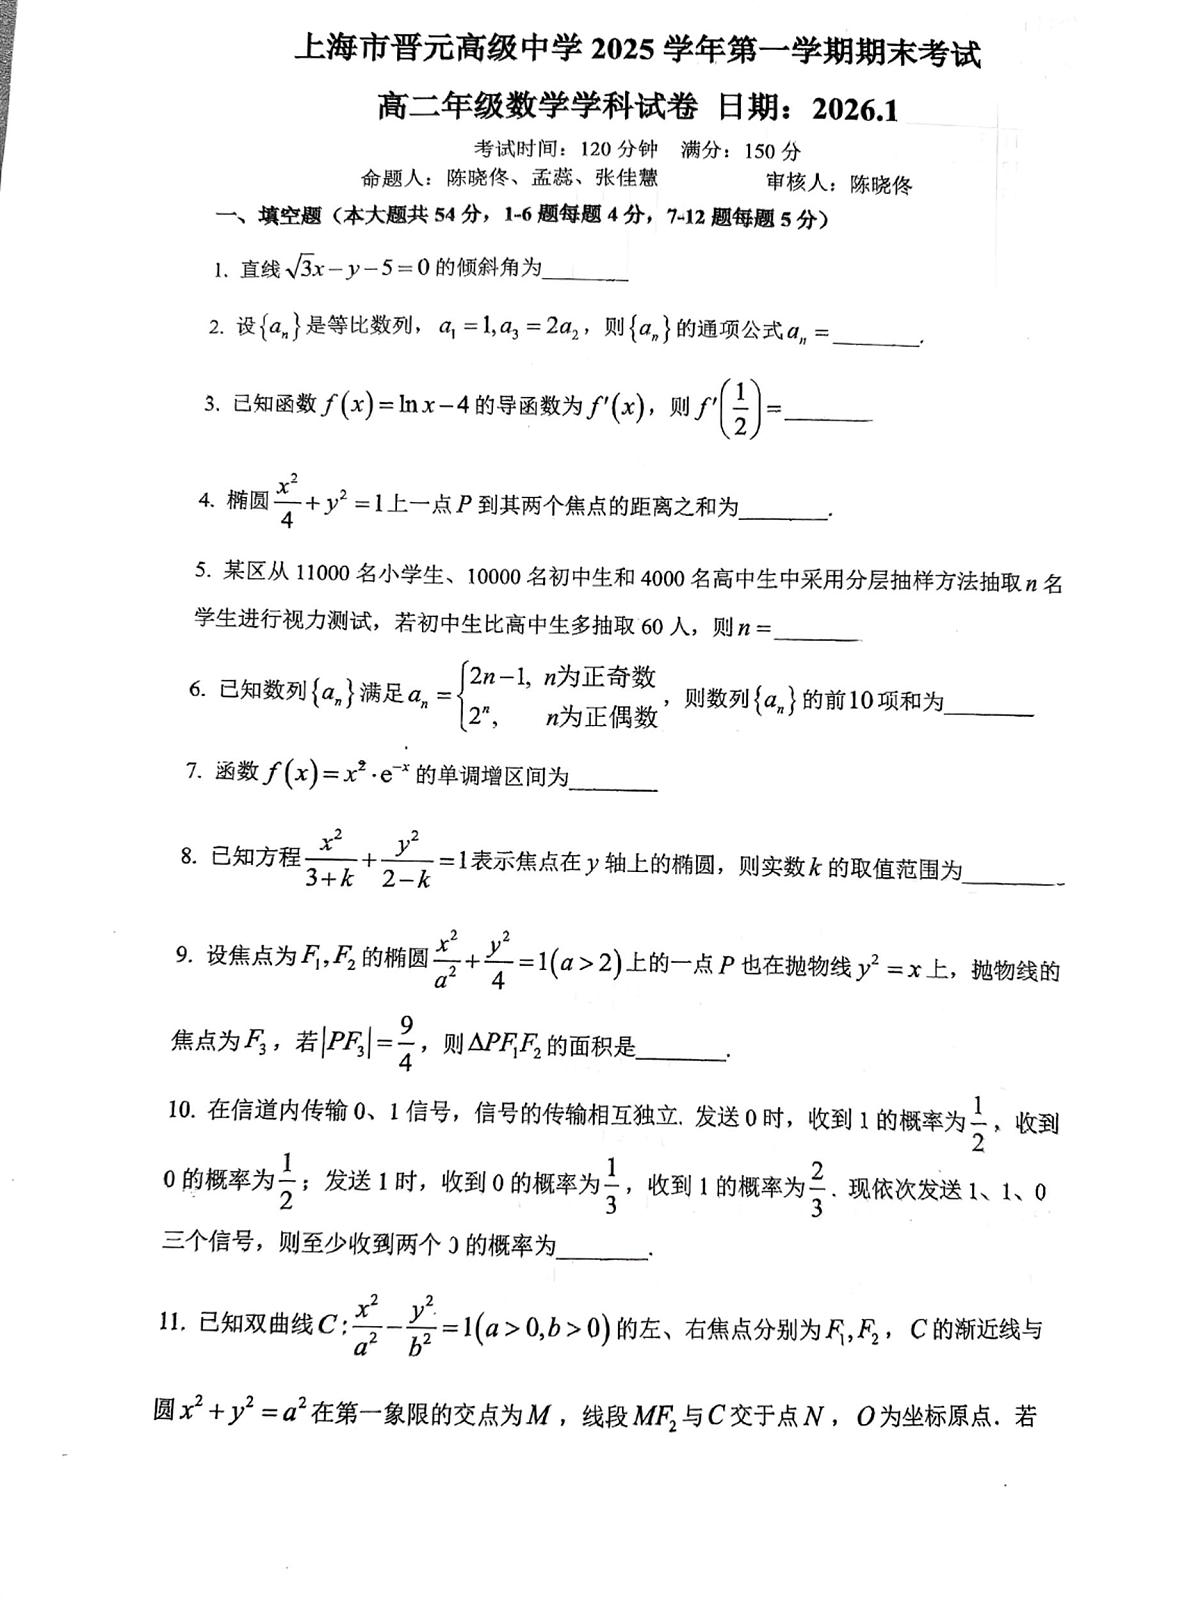 上海市晋元高级中学 2025 学年第一学期期末考试
高二年级数学学科试卷 日期：2026.1
考试时间：120 分钟 满分：150 分
命题人：陈晓佟、孟蕊、张佳慧 审核人：陈晓佟
一、填空题（本大题共 54 分，1-6 题每题 4 分，7-12 题每题 5 分）
1. 直线 √3x－y－5＝0 的倾斜角为________
2. 设{aₙ}是等比数列，a₁＝1,a₃＝2a₂，则{aₙ}的通项公式aₙ＝________.
3. 已知函数 f(x)＝ln x－4 的导函数为 f′(x)，则 f′(1/2)＝________
4. 椭圆 x²/4＋y²＝1上一点 P 到其两个焦点的距离之和为________.
5. 某区从 11000 名小学生、10000 名初中生和 4000 名高中生中采用分层抽样方法抽取 n 名
学生进行视力测试，若初中生比高中生多抽取 60 人，则 n＝________
6. 已知数列{aₙ}满足 aₙ＝{2n－1, n为正奇数 2ⁿ, n为正偶数，则数列{aₙ}的前10项和为________
7. 函数 f(x)＝x²·e⁻ˣ 的单调增区间为________
8. 已知方程 x²/(3＋k)＋y²/(2－k)＝1表示焦点在 y 轴上的椭圆，则实数 k 的取值范围为________
9. 设焦点为 F₁,F₂ 的椭圆 x²/a²＋y²/4＝1(a＞2)上的一点 P 也在抛物线 y²＝x 上，抛物线的
焦点为 F₃，若|PF₃|＝9/4，则 ΔPF₁F₂ 的面积是________.
10. 在信道内传输 0、1 信号，信号的传输相互独立. 发送 0 时，收到 1 的概率为 1/2，收到
0 的概率为 1/2；发送 1 时，收到 0 的概率为 1/3，收到 1 的概率为 2/3. 现依次发送 1、1、0
三个信号，则至少收到两个 0 的概率为________.
11. 已知双曲线 C:x²/a²－y²/b²＝1(a＞0,b＞0)的左、右焦点分别为 F₁,F₂，C 的渐近线与
圆 x²＋y²＝a² 在第一象限的交点为 M，线段 MF₂ 与 C 交于点 N，O 为坐标原点．若